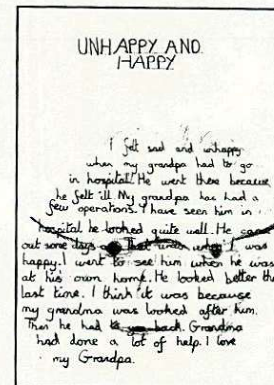 UNHAPPY AND
HAPPY
I felt sad and unhappy
when my grandpa had to go
in hospital. He went there because
he felt ill. My grandpa has had a
few operations. I have seen him in
hospital he looked quite well. He came
out some days That when why I was
happy. I went to see him when he was
at his own home. He looked better the
last time. I think it was because
my grandma was looked after him.
Then he had to go back. Grandma
had done a lot of help. I love
my Grandpa.